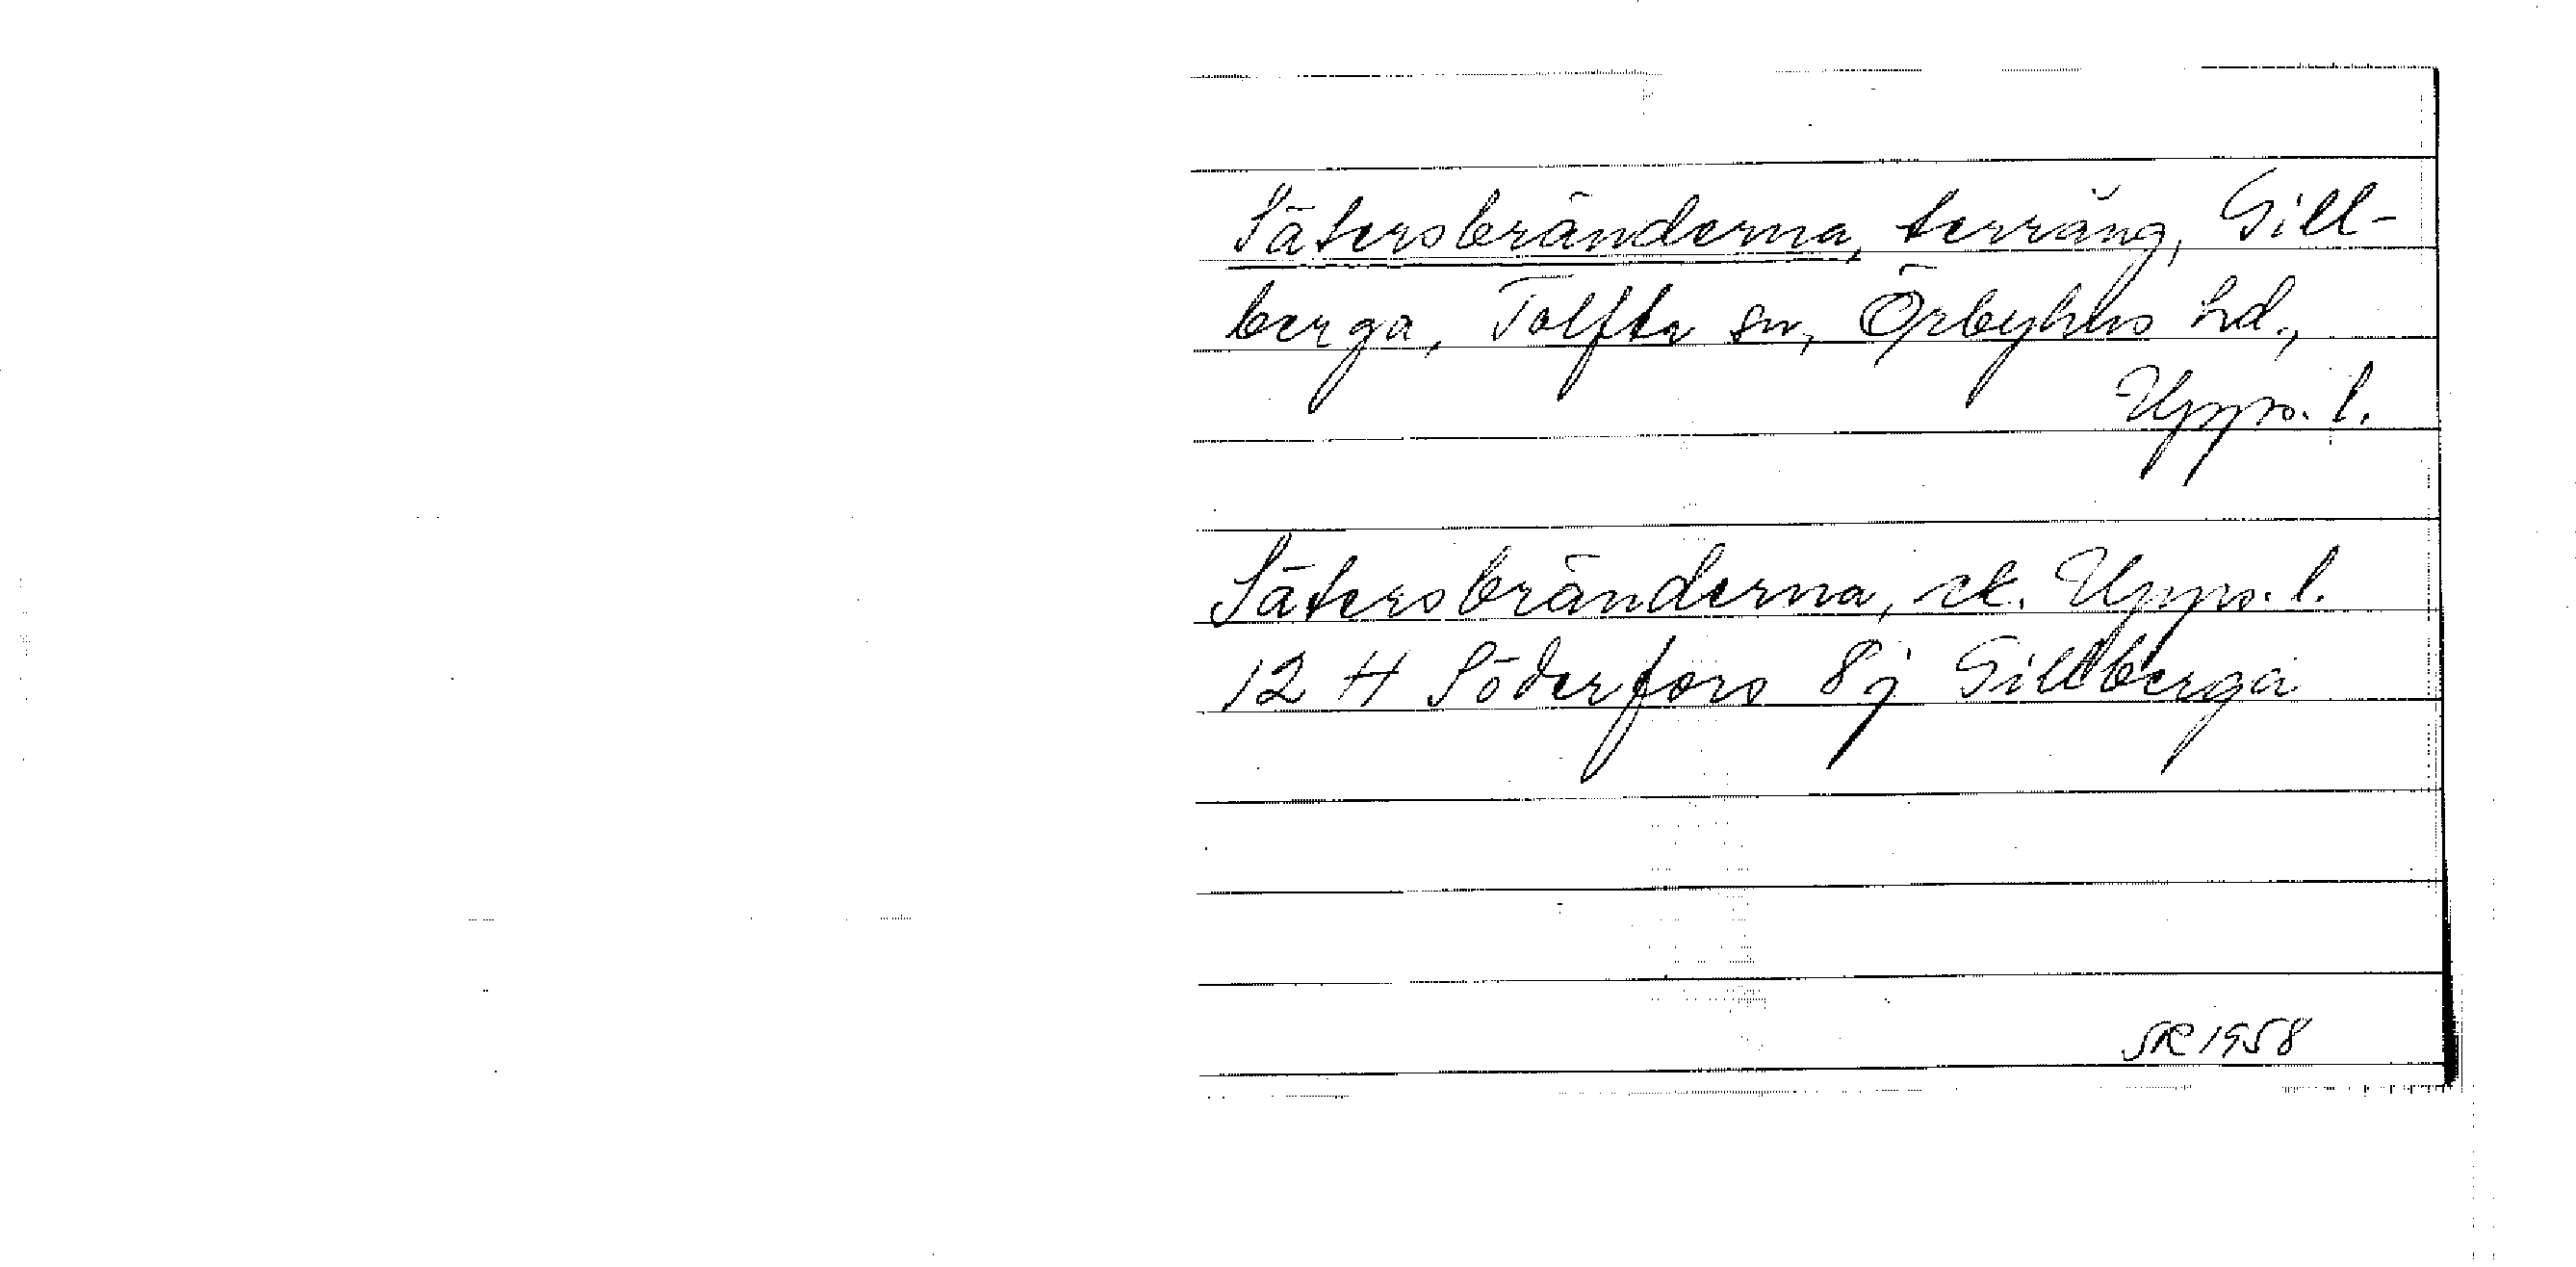 Sätersbränderna, terräng, Gill-
berga, Tolfta sn, Örbyhus hd.,
Upps. l.
Sätersbränderna, ek. Upps. l.
12 H Söderfors 8j Gillberga
SR 1958